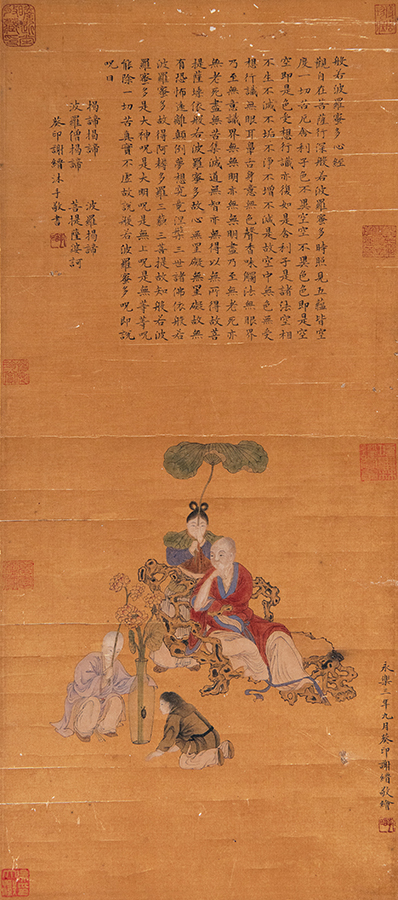 般若波羅蜜多心經
觀自在菩薩行深般若波羅蜜多時照見五蘊皆空
度一切苦厄舍利子色不異空空不異色色即是空
空即是色受想行識亦復如是舍利子是諸法空相
不生不滅不垢不淨不增不減是故空中無色無受
想行識無眼耳鼻舌身意無色聲香味觸法無眼界
乃至無意識界無無明亦無無明盡乃至無老死亦
無老死盡無苦集滅道無智亦無得以無所得故菩
提薩埵依般若波羅蜜多故心無罣礙無罣礙故無
有恐怖遠離顛倒夢想究竟涅槃三世諸佛依般若
波羅蜜多故得阿耨多羅三藐三菩提故知般若波
羅蜜多是大神呪是大明呪是無上呪是無等等呪
能除一切苦真實不虛故說般若波羅蜜多呪即說
呪曰
揭諦揭諦 波羅揭諦
波羅僧揭諦 菩提薩婆訶
癸卯謝縉沐手敬書
永樂三年九月癸卯謝縉敬繪